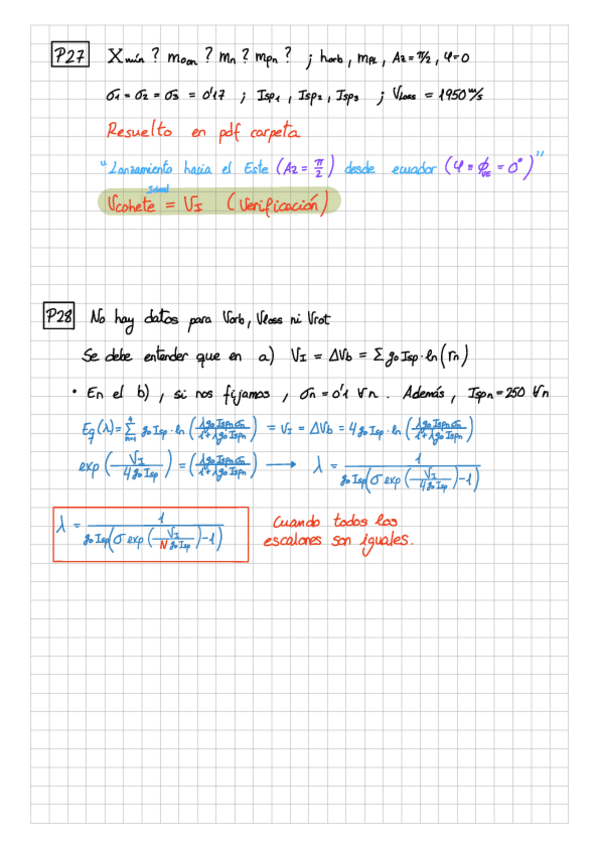 P27 Xmín ? moon ? mn ? mpn ? ; horb , mPL , Az = π/2 , φ=0
σ1 = σ2 = σ3 = 0'17 ; Isp1 , Isp2 , Isp3 ; Vloss = 1950 m/s
Resuelto en pdf carpeta
"Lanzamiento hacia el Este (Az = π/2) desde ecuador (φ = ϕ = 0°)"
Ideal
Vcohete = VI (Verificación)
P28 No hay datos para Vorb, Vloss ni Vrot
Se debe entender que en a) VI = ΔVb = Σ go Isp · ln(rn)
• En el b) , si nos fijamos , σn = 0'1 ∀n . Además , Ispn = 250 ∀n
Eq(λ) = Σ n=1 4 go Isp · ln (λ go Ispn σn / 1 + λ go Ispn) = VI = ΔVb = 4 go Isp · ln (λ go Ispn σn / 1 + λ go Ispn)
exp (VI / 4 go Isp) = (λ go Ispn σn / 1 + λ go Ispn) → λ = 1 / go Isp(σ exp (VI / 4 go Isp) - 1)
λ = 1 / go Isp(σ exp (VI / N go Isp) - 1) Cuando todos los
escalones son iguales.